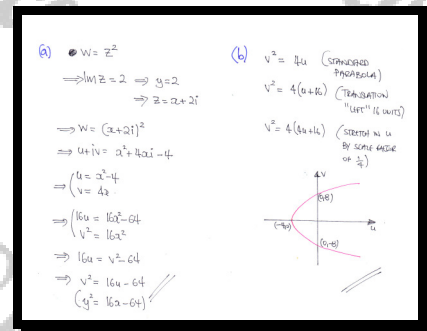 (a) W = z²
⟹ Im z = 2 ⟹ y = 2
⟹ z = x + 2i
⟹ W = (x+2i)²
⟹ u + iv = x² + 4xi - 4
⟹ { u = x² - 4
v = 4x
⟹ { 16u = 16x² - 64
v² = 16x²
⟹ 16u = v² - 64
⟹ v² = 16u - 64
(y² = 16x - 64)
(b) v² = 4u (STANDARD PARABOLA)
v² = 4(u+16) (TRANSLATION "LEFT" 16 UNITS)
v² = 4(4u+16) (STRETCH IN u BY SCALE FACTOR OF 1/4)
v
(0,8)
(-4,0)
u
(0,-8)